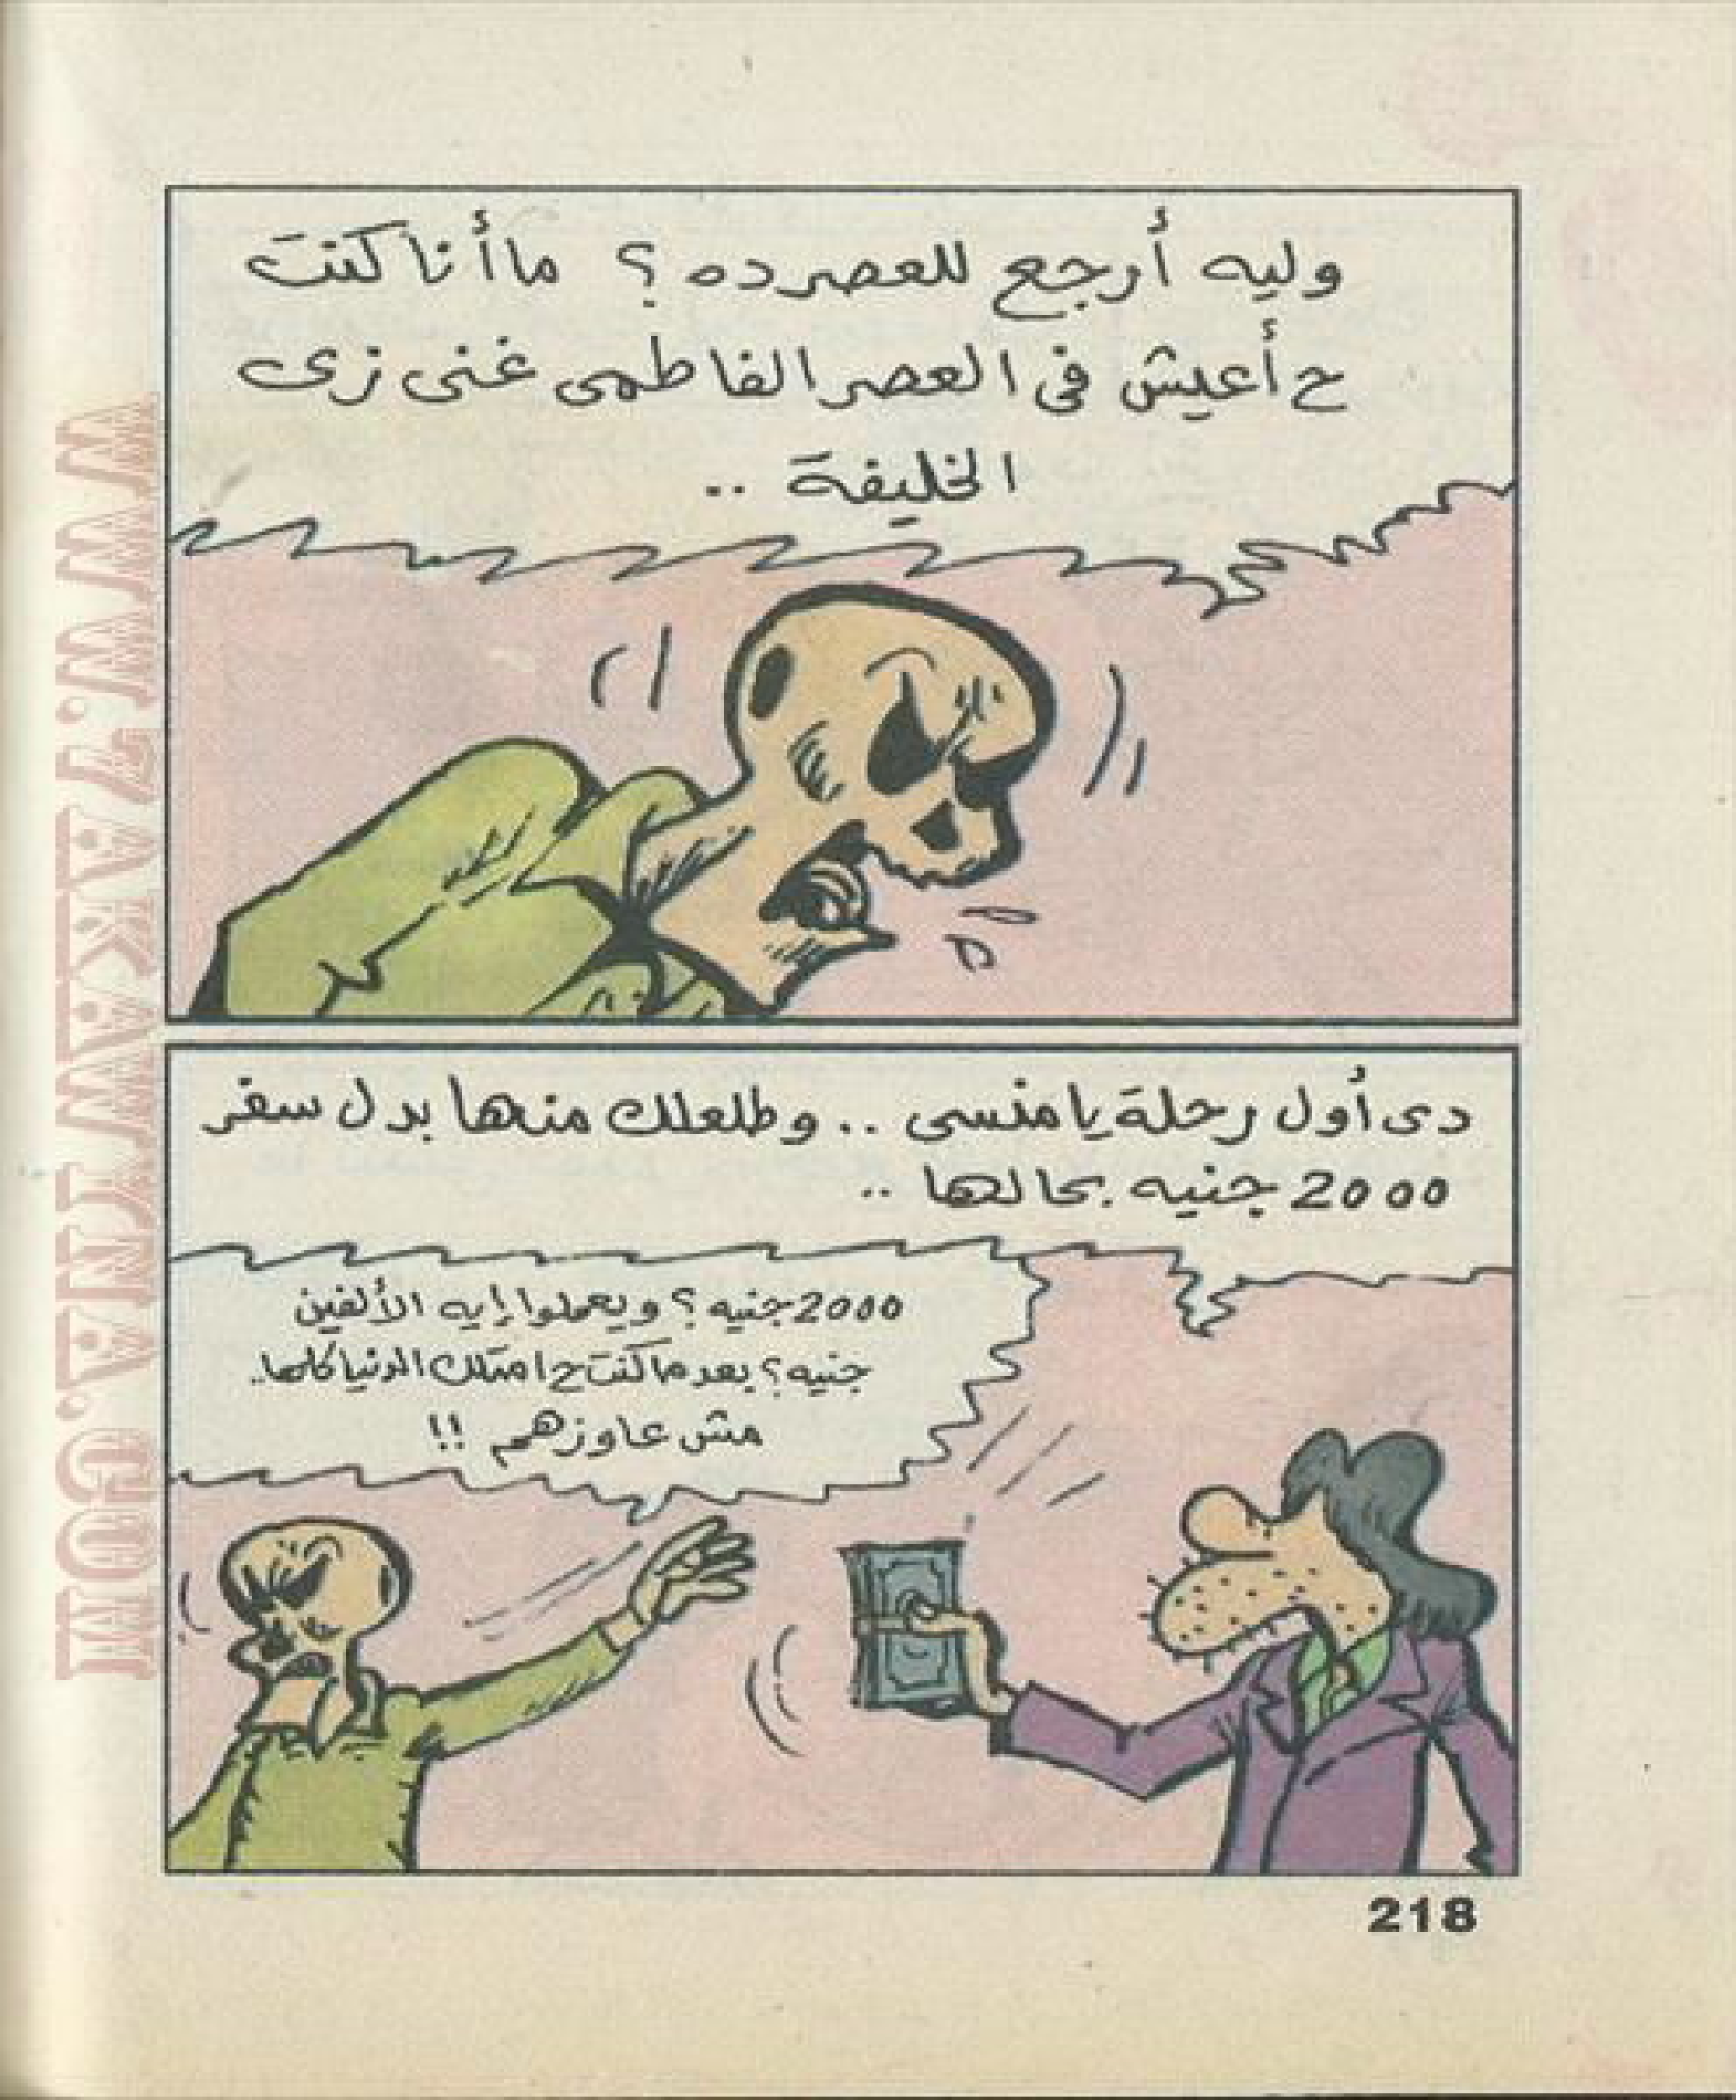 وليه أرجع للعصر ده ؟ ما أنا كنت
ح أعيش فى العصر الفاطمى غنى زى
الخليفة ..
دى أول رحلة يا منسى .. وطلعلك منها بدل سفر
2000 جنيه بحالها ..
2000 جنيه ؟ ويعملوا إيه الألفين
جنيه ؟ بعد ما كنت ح امتلك الدنيا كلها..
مش عاوزهم !!
218
WWW.7AKAWITNA.COM